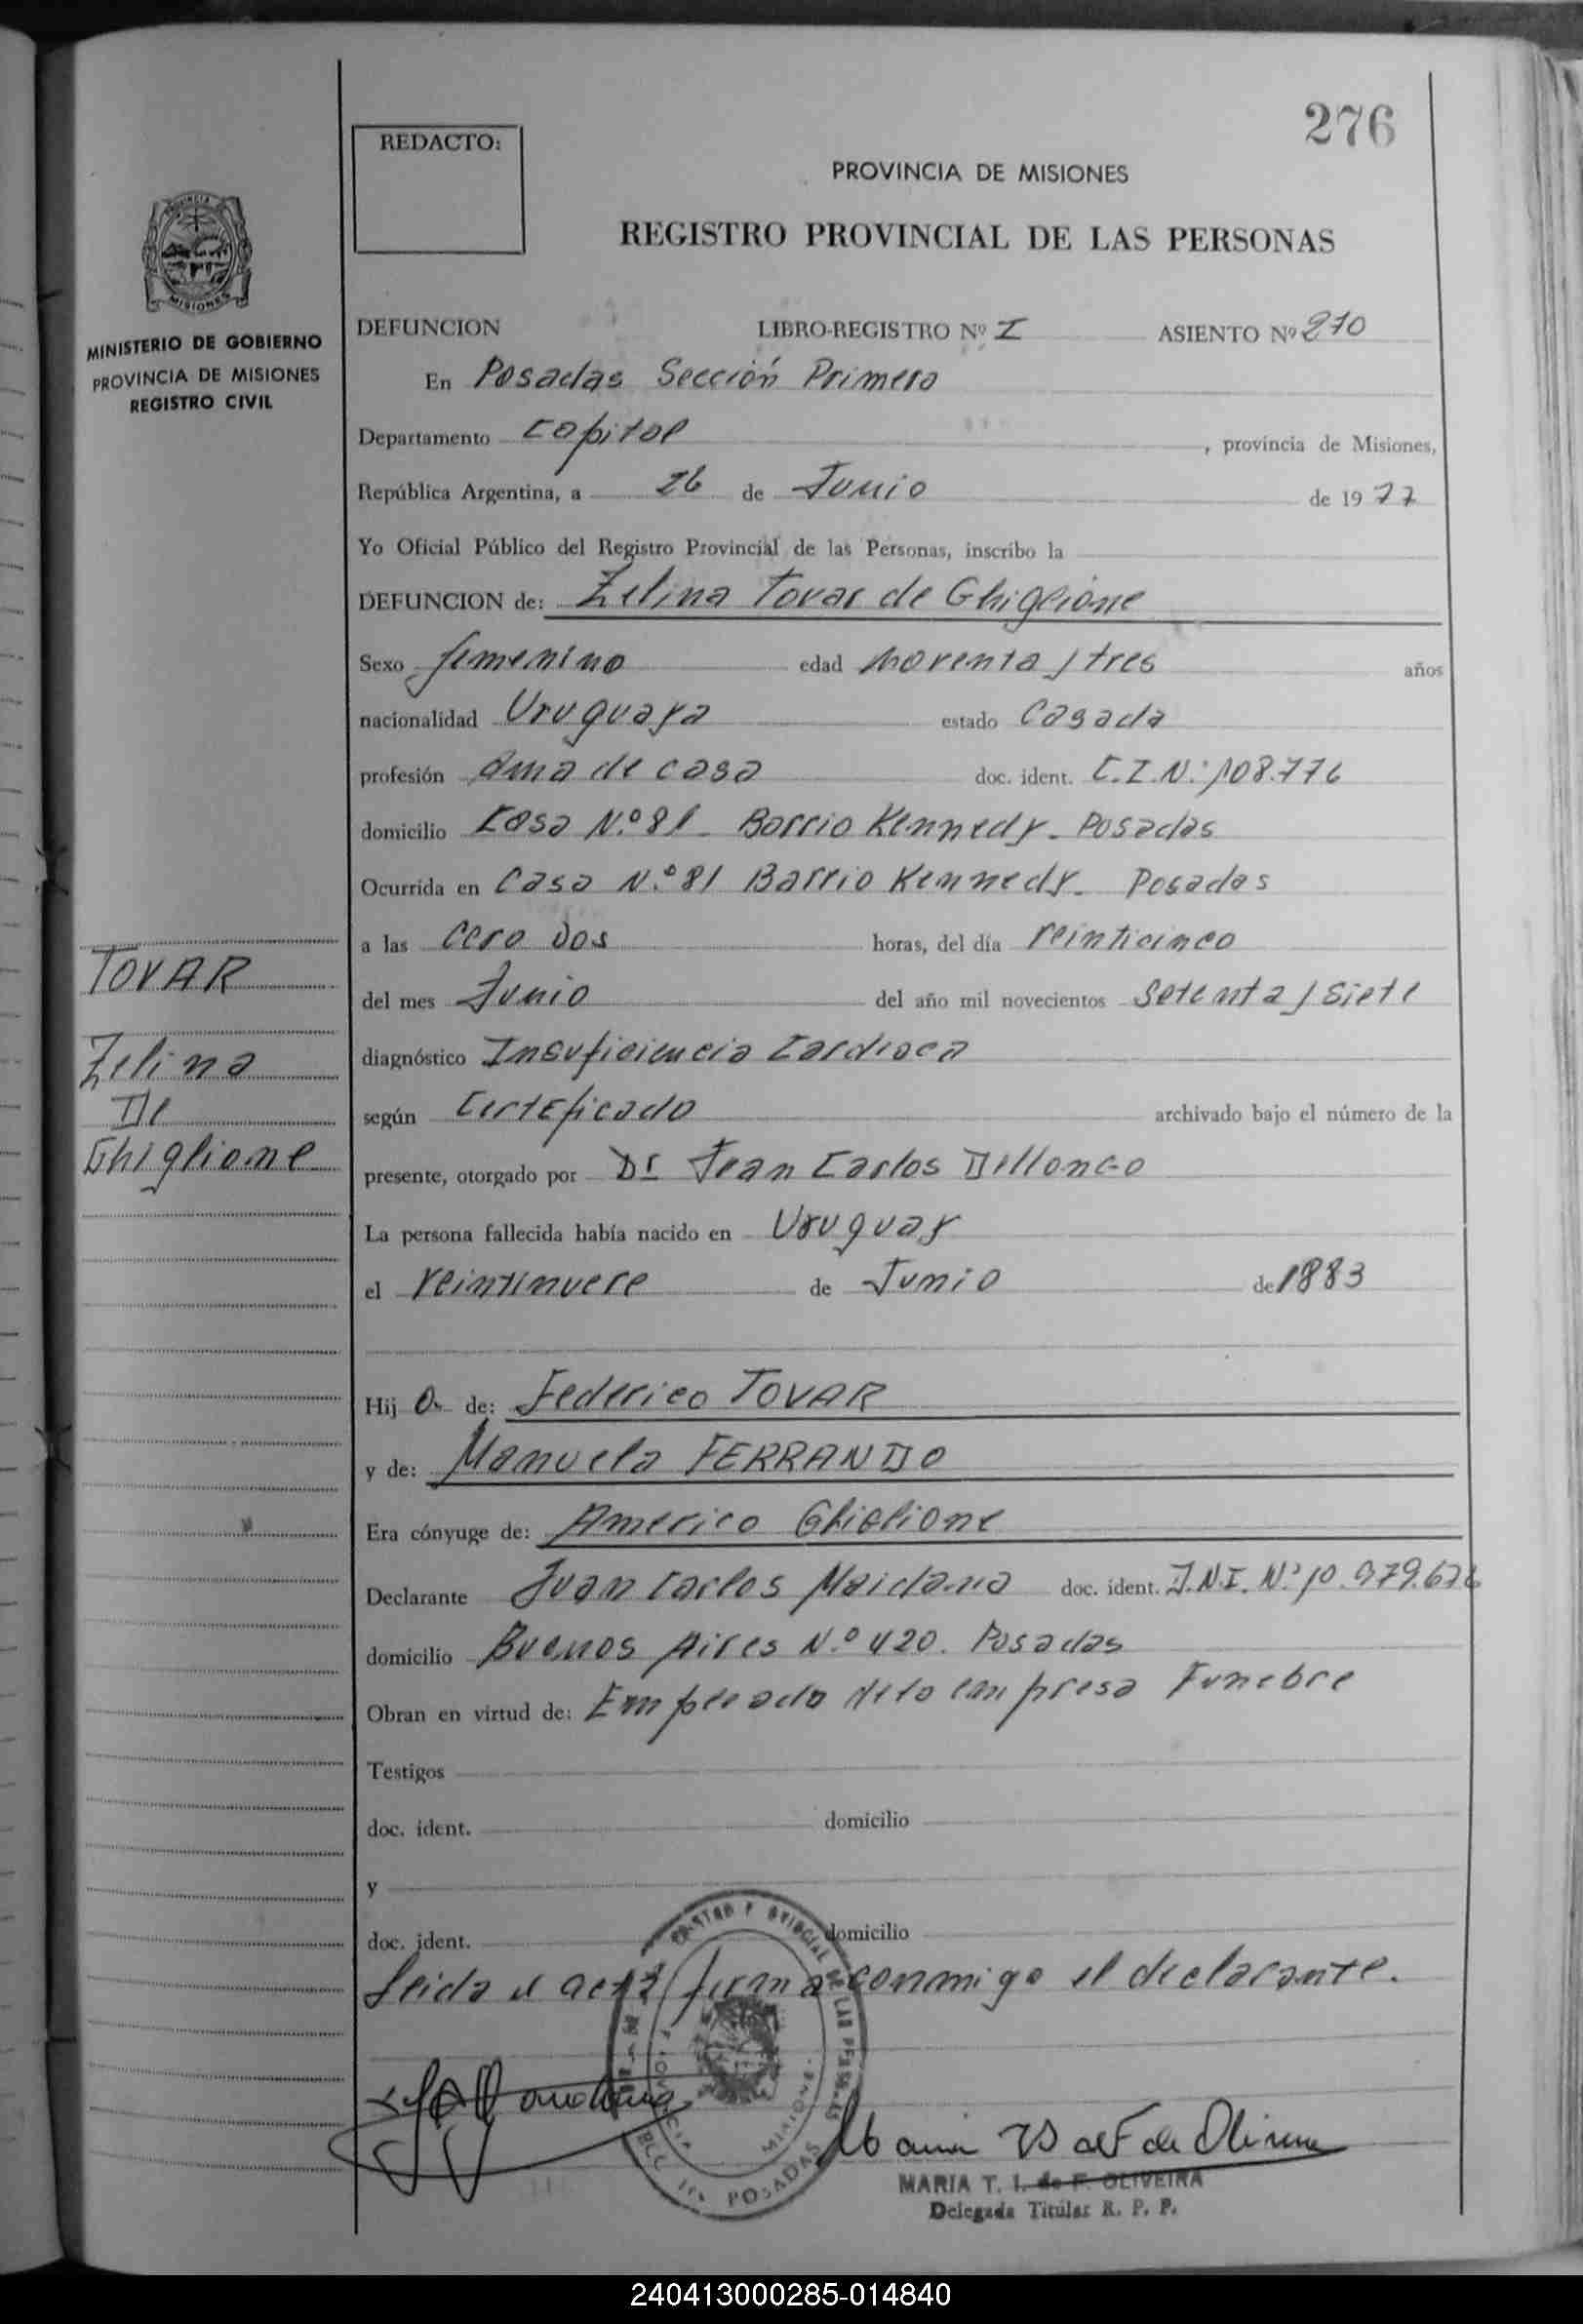 276
REDACTO:
PROVINCIA DE MISIONES
REGISTRO PROVINCIAL DE LAS PERSONAS
MISIONES
MINISTERIO DE GOBIERNO
PROVINCIA DE MISIONES
REGISTRO CIVIL
DEFUNCION LIBRO-REGISTRO Nº I ASIENTO Nº 270
En Posadas Sección Primera
Departamento Capital, provincia de Misiones,
República Argentina, a 26 de Junio de 1977
Yo Oficial Público del Registro Provincial de las Personas, inscribo la
DEFUNCION de: Zelina Tovar de Ghiglione
Sexo femenino edad noventa y tres años
nacionalidad Uruguaya estado Casada
profesión Ama de casa doc. ident. C.I.N.º 108.776
domicilio Casa N.º 81 - Barrio Kennedy - Posadas
Ocurrida en Casa N.º 81 Barrio Kennedy - Posadas
a las Cero Dos horas, del día veinticinco
del mes Junio del año mil novecientos Setenta y Siete
diagnóstico Insuficiencia Cardiaca
según Certeficado archivado bajo el número de la
presente, otorgado por Dr Jean Carlos Dellonco
La persona fallecida había nacido en Uruguay
el veintinueve de Junio de 1883
Hij a de: Federico TOVAR
y de: Manuela FERRANDO
Era cónyuge de: Americo Ghiglione
Declarante Juan Carlos Maidana doc. ident. D.N.I. Nº 10.979.676
domicilio Buenos Aires N.º 420. Posadas
Obran en virtud de: Empleado de la empresa Funebre
Testigos
doc. ident. domicilio
y
doc. ident. domicilio
Leida el acta firma conmigo el declarante.
TOVAR
Zelina
De
Ghiglione
PROVINCIA MISIONES
POSADAS
MARIA T. I. de F. OLIVEIRA
Delegada Titular R. P. P.
240413000285-014840